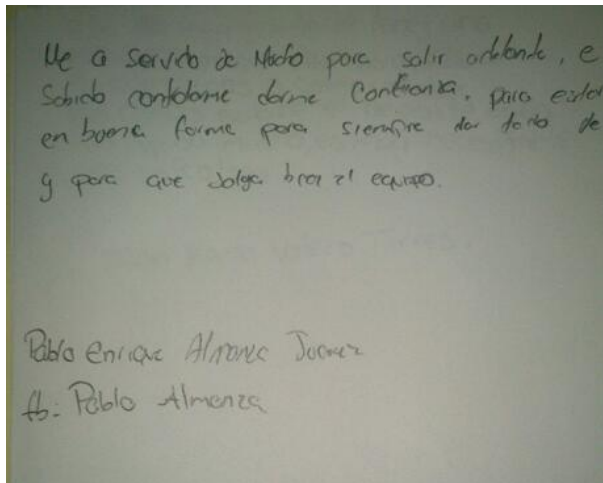 Me a servido de Mucho para salir adelante, e
Sabido controlarme darme Confianza, para estar
en buena forma para siempre dar todo de
y para que salga bien el equipo.
Pablo enrique Almanza Juarez
fb: Pablo Almanza